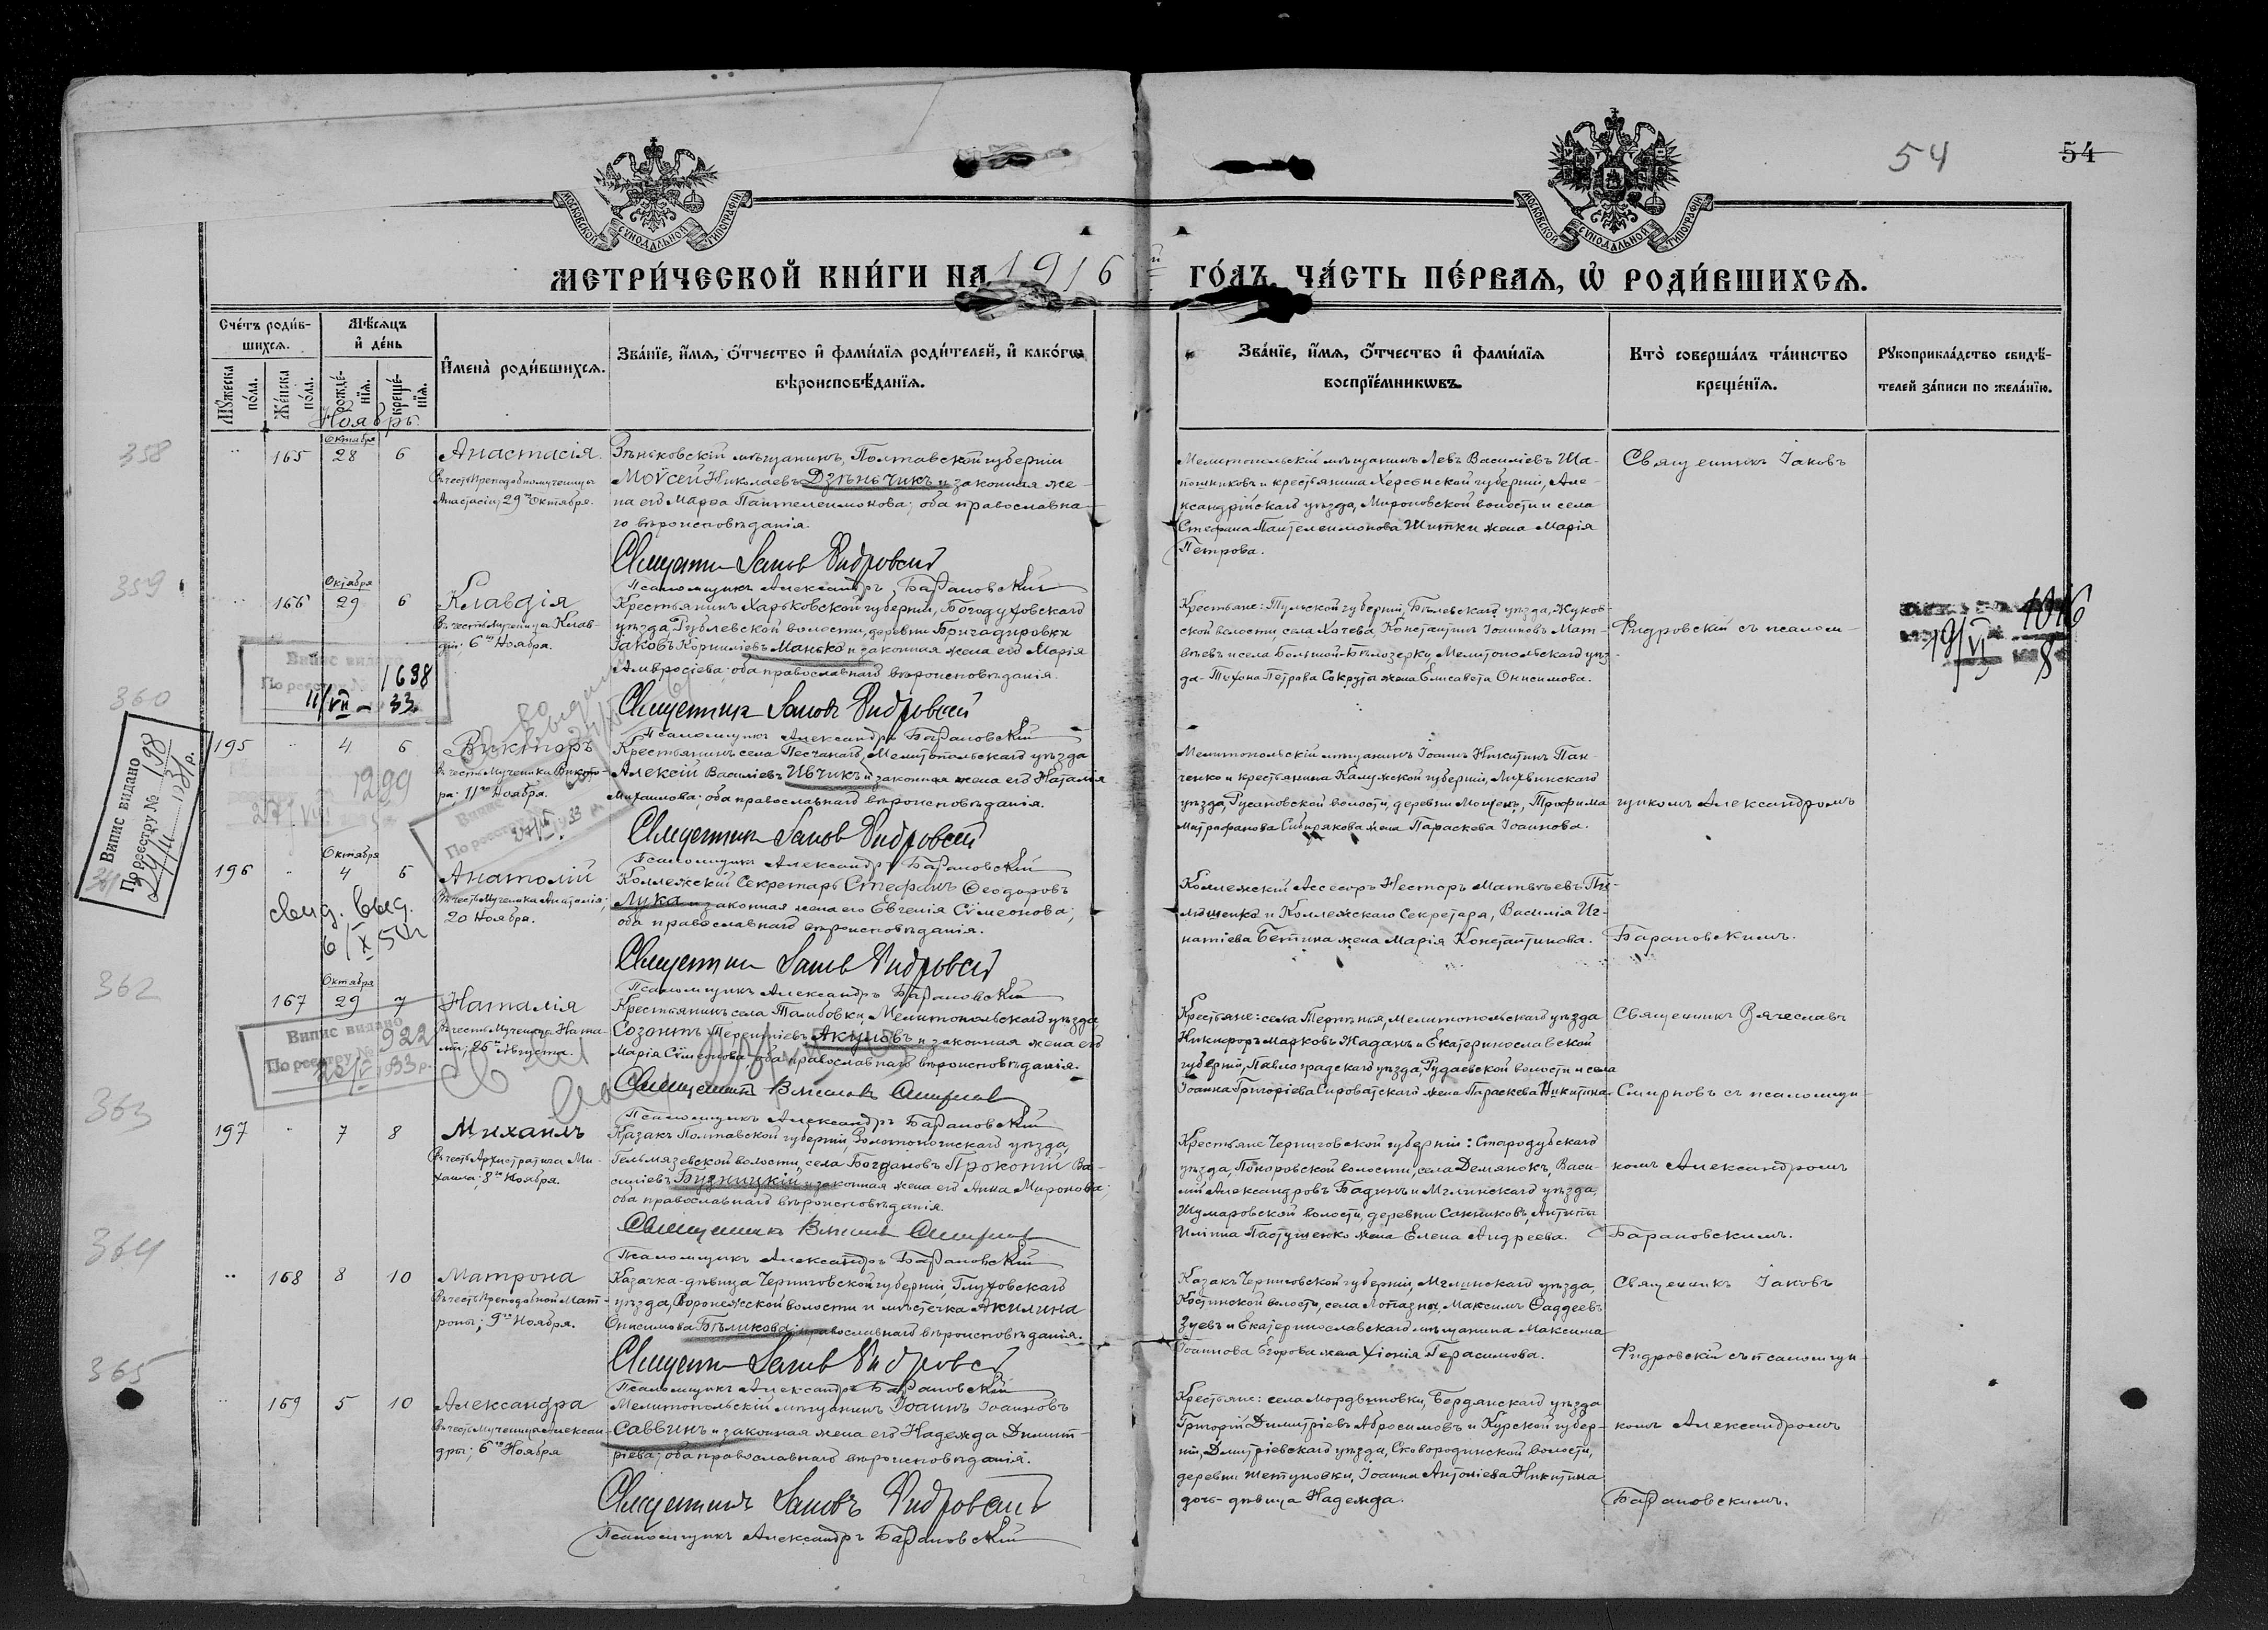 54
54
МОСКОВСКОЙ СѴНОДАЛЬНОЙ ТИПОГРАФІИ
МОСКОВСКОЙ СѴНОДАЛЬНОЙ ТИПОГРАФІИ
МЕТРИ́ЧЕСКОЙ КНИ́ГИ НА 1916 й ГО́ДЪ, ЧА́СТЬ ПЕ́РВАѦ, Ѡ҆ РОДИ́ВШИХСѦ.
Сче́тъ роди́в-
шихсѧ.
Мѣ́сѧцъ
и҆ де́нь
И҆мена̀ роди́вшихсѧ.
Зва́нїе, и҆́мѧ, ѻ҆́тчество и҆ фами́лїѧ роди́телей, и҆ како́гѡ
вѣроисповѣ́данїѧ.
Мꙋ́жеска по́ла.
Же́нска по́ла.
рожде́нїѧ.
креще́нїѧ.
Ноябрь.
Зва́нїе, и҆́мѧ, ѻ҆́тчество и҆ фами́лїѧ
воспрїе́мникѡвъ.
Кто̀ соверша́лъ та́инство
креще́нїѧ.
Рꙋкоприкла́дство свидѣ́-
телей за́писи по жела́нїю.
358
Октября
165 28 6 Анастасія.
Въ честь Преподобномученицы
Анастасіи; 29го Октября.
Зѣньковскій мѣщанинъ, Полтавской губерніи
Моѵсей Николаевъ Дзѣньчикъ и законная же-
на его Марѳа Пантелеимонова; оба православна-
го вѣроисповѣданія.
Священникъ Іаковъ Фидровскій
Псаломщикъ Александръ Барановскій
Мелитопольскій мѣщанинъ Левъ Василіевъ Ша-
пошниковъ и крестьянина Херсонской губерніи, Але-
ксандрійскаго уѣзда, Мироновской волости и села
Стефана Пантелеимонова Шитки жена Марія
Петрова.
Священникъ Іаковъ
359
Октября
166 29 6 Клавдія
Въ честь Мученицы Клав-
діи; 6го Ноября.
Крестьянинъ Харьковской губерніи, Богодуховскаго
уѣзда, Рублевской волости, деревни Бригадировки
Іаковъ Корниліевъ Манько и законная жена его Марія
Амвросіева; оба православнаго вѣроисповѣданія.
Священникъ Іаковъ Фидровскій
Псаломщикъ Александръ Барановскій
Крестьяне: Тульской губерніи, Бѣлевскаго уѣзда, Жуков-
ской волости села Хочева, Константинъ Іоанновъ Мат-
вѣевъ и села Большой-Бѣлозерки, Мелитопольскаго уѣз-
да Тихона Петрова Сокруты жена Елисавета Онисимова.
Фидровскій съ псалом-
1016
19/VI 8
Випис видано
По реєстру № 1698
11/VII – 33
360
195 4 6 Викторъ
Въ честь Мученика Викто-
ра; 11го Ноября.
Крестьянинъ села Песчанаго, Мелитопольскаго уѣзда
Алексій Василіевъ Ивчикъ и законная жена его Наталія
Михаилова; оба православнаго вѣроисповѣданія.
Священникъ Іаковъ Фидровскій
Псаломщикъ Александръ Барановскій
Мелитопольскій мѣщанинъ Іоаннъ Никитинъ Пан-
ченко и крестьянина Калужской губерніи, Лихвинскаго
уѣзда, Русановской волости, деревни Мощенъ, Трофима
Митрофанова Сибирякова жена Параскева Іоаннова.
щикомъ Александромъ
Випис видано
По реєстру № 198
24/III 1931 р.
1299
27/VIII
Випис
По реєстру
361
Октября
196 4 6 Анатолій
Въ честь Мученика Анатолія;
20 Ноября.
свид. выд.
6/X 50г
Коллежскій Секретарь Стефанъ Ѳеодоровъ
Лука и законная жена его Евгенія Сѵмеонова;
оба православнаго вѣроисповѣданія.
Священникъ Іаковъ Фидровскій
Псаломщикъ Александръ Барановскій
Коллежскій Ассесоръ Несторъ Матвѣевъ Ти-
мошенко и Коллежскаго Секретаря, Василія Иг-
натіева Бетина жена Марія Константинова.
Барановскимъ.
362
Октября
167 29 7 Наталія
Въ честь Мученицы Ната-
ліи; 26го Августа.
Випис видано
По реєстру № 922
1933 р.
Крестьянинъ села Тамбовки, Мелитопольскаго уѣзда
Созонтъ Терентіевъ Акуловъ и законная жена его
Марія Сѵмеонова; оба православнаго вѣроисповѣданія.
Священникъ Вячеславъ Смирновъ
Псаломщикъ Александръ Барановскій
Крестьяне: села Терпѣнья, Мелитопольскаго уѣзда
Никифоръ Марковъ Жаданъ и Екатеринославской
губерніи, Павлоградскаго уѣзда, Рудаевской волости и села
Іоанна Григоріева Сироватскаго жена Параскева Никитина.
Священникъ Вячеславъ
Смирновъ съ псаломщи-
363
197 7 8 Михаилъ
Въ честь Архистратига Ми-
хаила; 8го Ноября.
Казакъ Полтавской губерніи, Золотоношскаго уѣзда,
Гельмязевской волости, села Богдановъ Прокопій Ва-
силіевъ Будницкій и законная жена его Анна Миронова;
оба православнаго вѣроисповѣданія.
Священникъ Вячеславъ Смирновъ
Псаломщикъ Александръ Барановскій
Крестьяне Черниговской губерніи: Стародубскаго
уѣзда, Понуровской волости, села Демянокъ, Васи-
лій Александровъ Бадинъ и Мглинскаго уѣзда,
Шумаровской волости, деревни Санниковъ, Антипы
Иліина Пастушенко жена Елена Андреева.
комъ Александромъ
Барановскимъ.
364
168 8 10 Матрона
Въ честь Преподобной Мат-
роны; 9го Ноября.
Казачка-дѣвица Черниговской губерніи, Глуховскаго
уѣзда, Воронежской волости и мѣстечка Акилина
Онисимова Бѣликова; православнаго вѣроисповѣданія.
Священникъ Іаковъ Фидровскій
Псаломщикъ Александръ Барановскій
Казакъ Черниговской губерніи, Мглинскаго уѣзда,
Костинской волости, села Лопазны, Максимъ Ѳаддеевъ
Зуевъ и Екатеринославскаго мѣщанина Максима
Іоаннова Егорова жена Хіонія Герасимова.
Священникъ Іаковъ
Фидровскій съ псаломщи-
365
169 5 10 Александра
Въ честь Мученицы Алексан-
дры; 6го Ноября
Мелитопольскій мѣщанинъ Іоаннъ Іоанновъ
Саввинъ и законная жена его Надежда Димит-
ріева; оба православнаго вѣроисповѣданія.
Священникъ Іаковъ Фидровскій
Псаломщикъ Александръ Барановскій
Крестьяне: села Мордвиновки, Бердянскаго уѣзда
Григорій Димитріевъ Абросимовъ и Курской губер-
ніи, Дмитріевскаго уѣзда, Сковородинской волости,
деревни Шетуновки, Іоанна Антоніева Никитина
дочь-дѣвица Надежда.
комъ Александромъ
Барановскимъ.